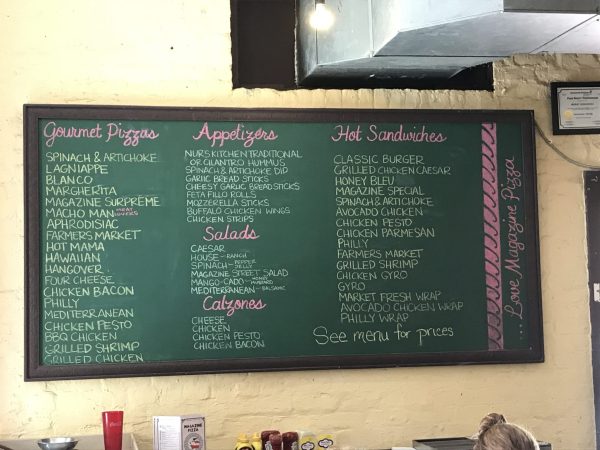 Gourmet Pizzas
SPINACH & ARTICHOKE
LAGNIAPPE
BLANCO
MARGHERITA
MAGAZINE SURPRÈME
MACHO MAN MEAT LOVERS
APHRODISIAC
FARMERS MARKET
HOT MAMA
HAWAIIAN
HANGOVER
FOUR CHEESE
CHICKEN BACON
PHILLY
MEDITERRANEAN
CHICKEN PESTO
BBQ CHICKEN
GRILLED SHRIMP
GRILLED CHICKEN
Appetizers
NUR'S KITCHEN TRADITIONAL
OR CILANTRO HUMMUS
SPINACH & ARTICHOKE DIP
GARLIC BREAD STICKS
CHEESY GARLIC BREADSTICKS
FETA FILLO ROLLS
MOZZERELLA STICKS
BUFFALO CHICKEN WINGS
CHICKEN STRIPS
Salads
CAESAR
HOUSE - RANCH
SPINACH - PEPPER JELLY
MAGAZINE STREET SALAD
MANGO-CADO - HONEY MUSTARD
MEDITERRANEAN - BALSAMIC
Calzones
CHEESE
CHICKEN
CHICKEN PESTO
CHICKEN BACON
Hot Sandwiches
CLASSIC BURGER
GRILLED CHICKEN CAESAR
HONEY BLEU
MAGAZINE SPECIAL
SPINACH & ARTICHOKE
AVOCADO CHICKEN
CHICKEN PESTO
CHICKEN PARMESAN
PHILLY
FARMERS MARKET
GRILLED SHRIMP
CHICKEN GYRO
GYRO
MARKET FRESH WRAP
AVOCADO CHICKEN WRAP
PHILLY WRAP
See menu for prices
...Love Magazine Pizza
MAGAZINE
PIZZA